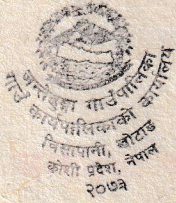 गाउँपालिका
गाउँ कार्यपालिकाको कार्यालय
चिसापानी, खोटाङ
कोशी प्रदेश, नेपाल
२०७३